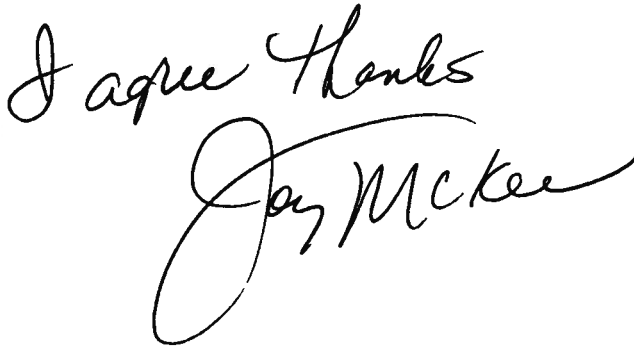 I agree Thanks
Joy McKee